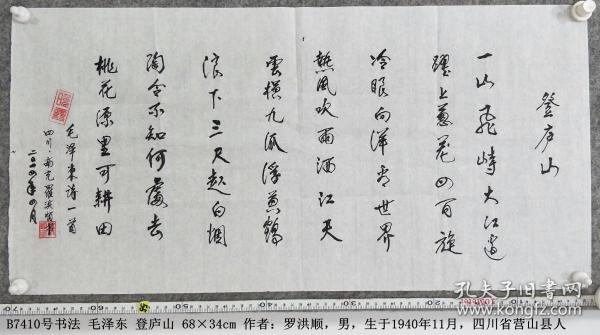 登庐山
一山飞峙大江边
跃上葱茏四百旋
冷眼向洋看世界
熱風吹雨洒江天
雲横九派浮黄鶴
浪下三吴起白烟
陶令不知何處去
桃花源里可耕田
毛泽东诗一首
四川·南充羅洪順書
二〇〇四年四月
孔夫子旧书网
B7410号书法 毛泽东 登庐山 68×34cm 作者：罗洪顺，男，生于1940年11月，四川省营山县人